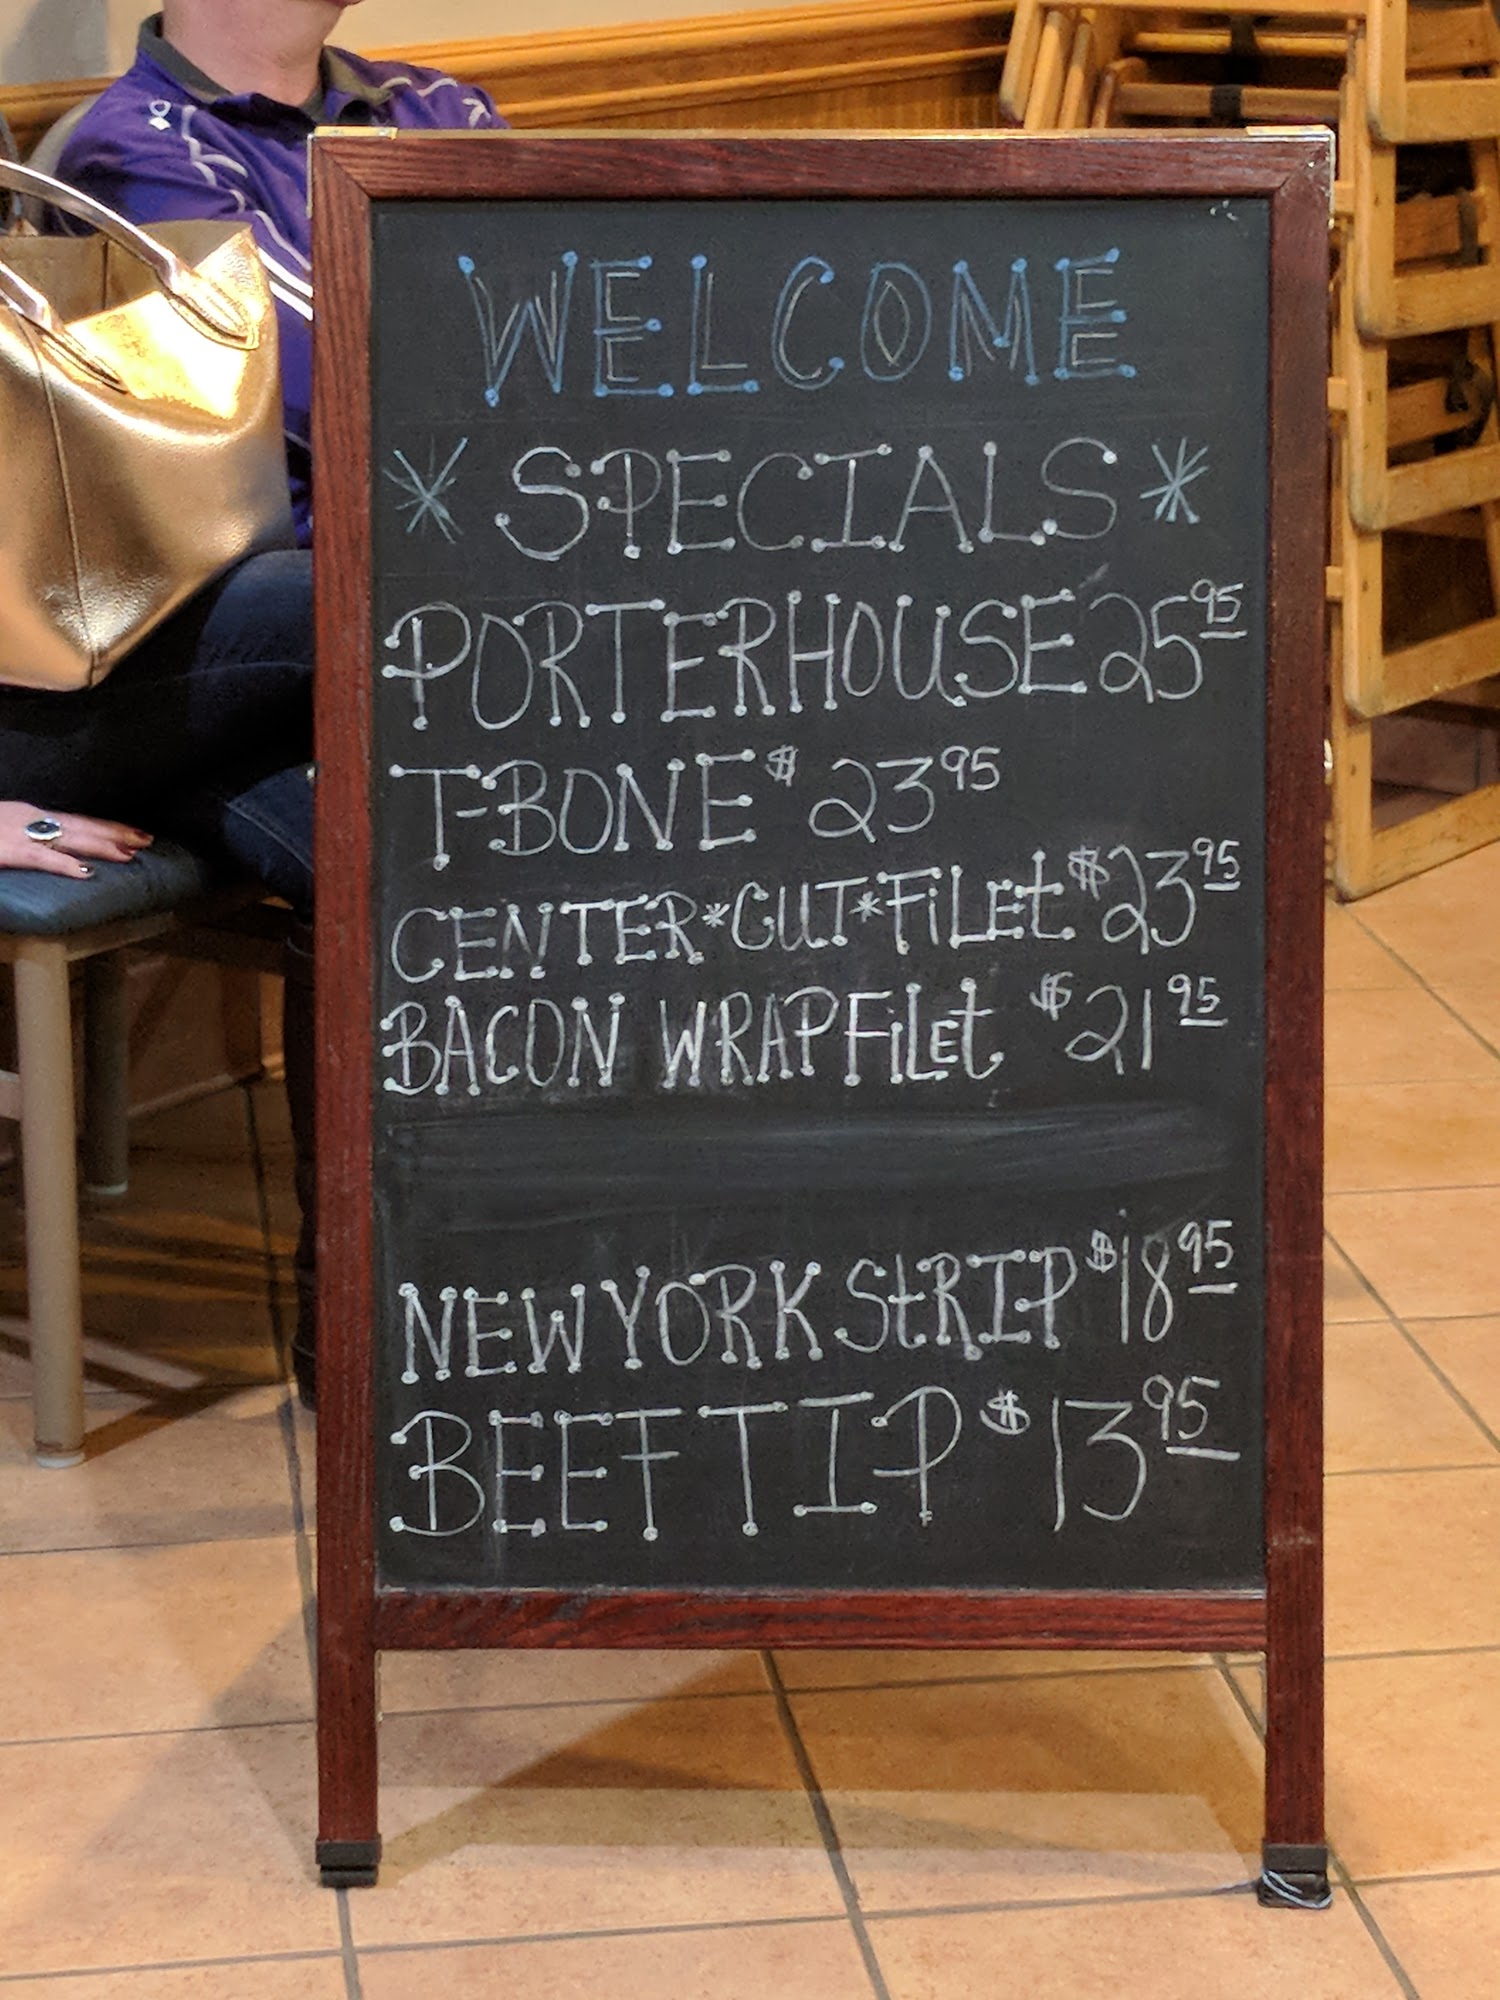 WELCOME
* SPECIALS *
PORTERHOUSE 25 95
T-BONE $ 23 95
CENTER*CUT*FiLEt $23 95
BACON WRAP FiLEt $21 95
NEW YORK StRIP $18 95
BEEF TIP $13 95